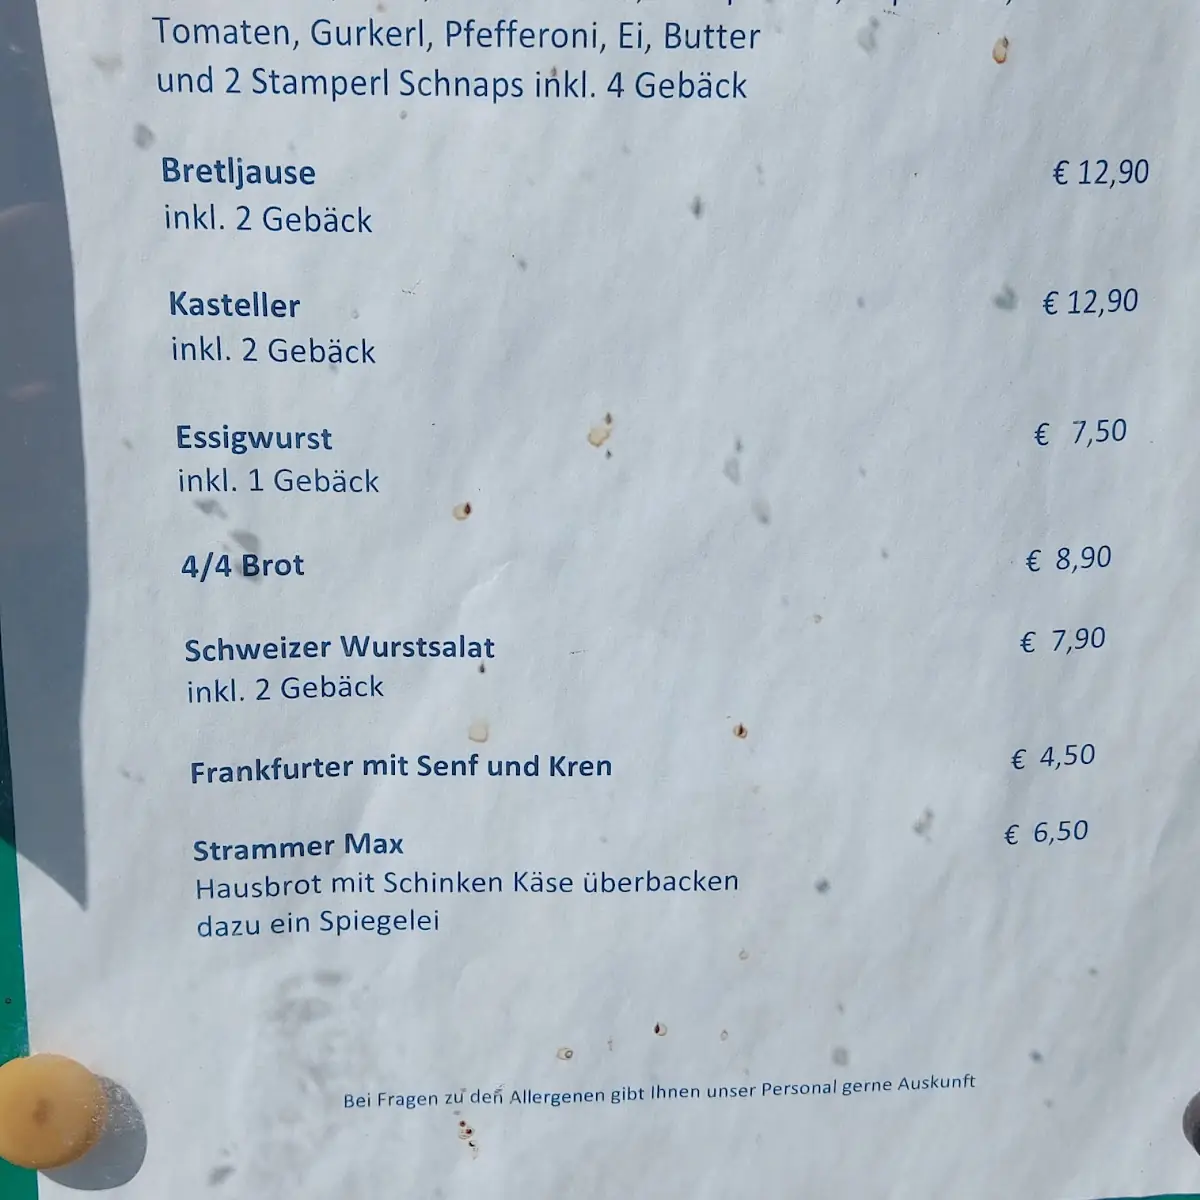 Tomaten, Gurkerl, Pfefferoni, Ei, Butter
und 2 Stamperl Schnaps inkl. 4 Gebäck
Bretljause € 12,90
inkl. 2 Gebäck
Kasteller € 12,90
inkl. 2 Gebäck
Essigwurst € 7,50
inkl. 1 Gebäck
4/4 Brot € 8,90
Schweizer Wurstsalat € 7,90
inkl. 2 Gebäck
Frankfurter mit Senf und Kren € 4,50
Strammer Max € 6,50
Hausbrot mit Schinken Käse überbacken
dazu ein Spiegelei
Bei Fragen zu den Allergenen gibt Ihnen unser Personal gerne Auskunft